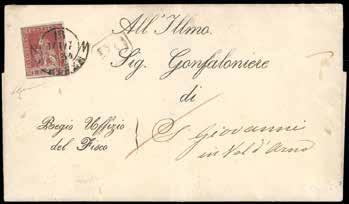 All'Illmo.
Sig. Gonfaloniere
di
Regio Uffizio
del Fisco
S. Giovanni
in Val d'Arno